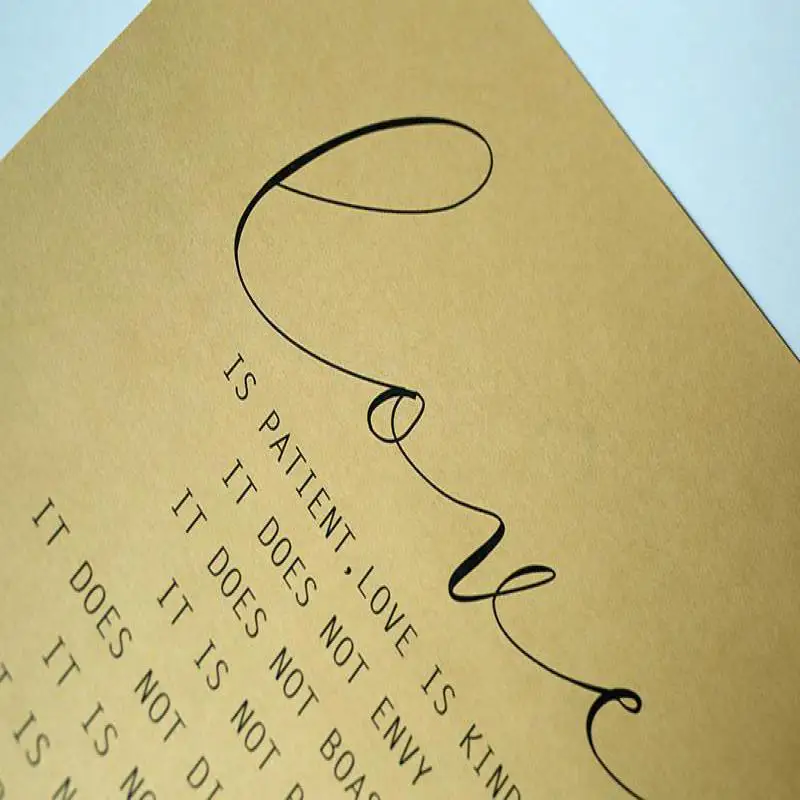 love
IS PATIENT, LOVE IS KIND
IT DOES NOT ENVY
IT DOES NOT BOAS
IT IS NOT
IT DOES NOT DI
IT IS NO
IS N